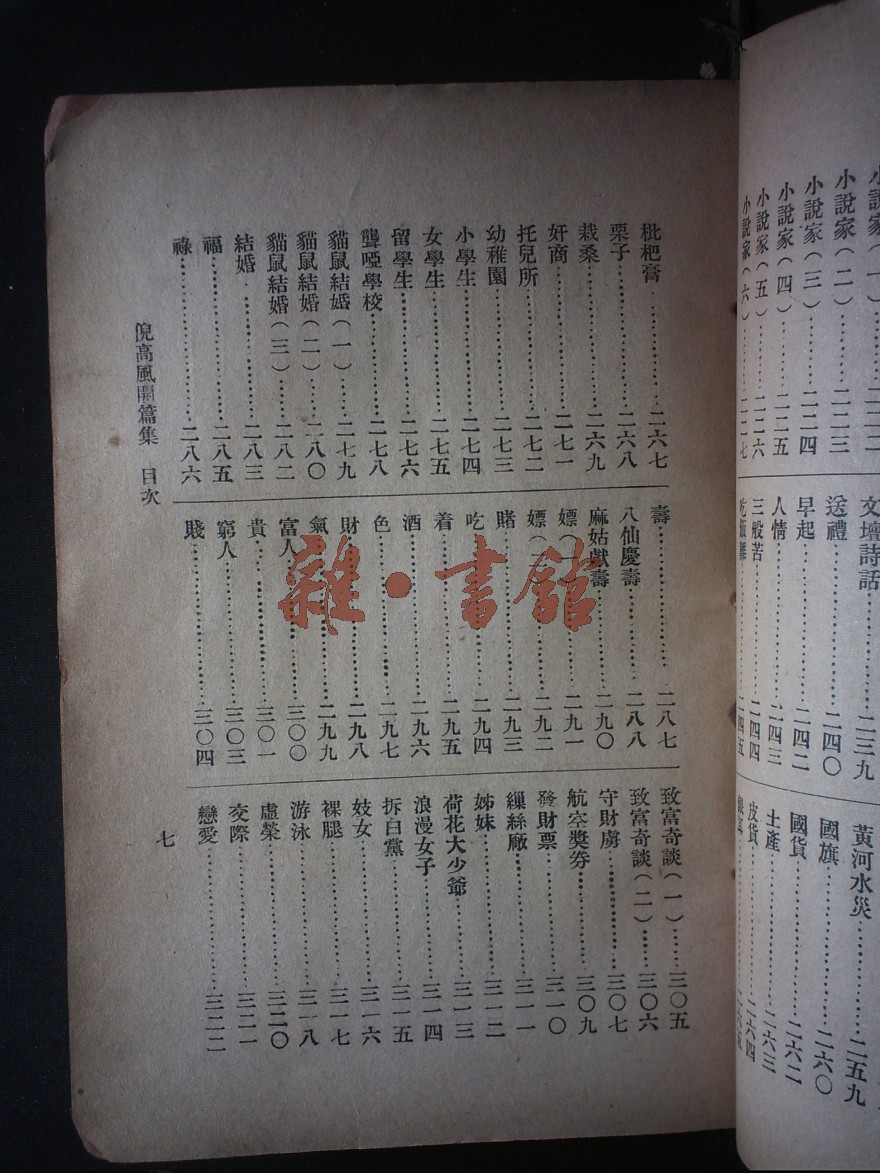 小說家（一）……二二二
小說家（二）……二二三
小說家（三）……二二四
小說家（四）……二二五
小說家（五）……二二六
小說家（六）……二二七
文壇詩話……二三九
送禮……二四〇
早起……二四二
人情……二四三
三般苦……二四四
吃飯難……二四五
黃河水災……二五九
國旗……二六〇
國貨……二六二
土產……二六三
皮貨……二六四
枇杷膏……二六七
栗子……二六八
栽桑……二六九
奸商……二七一
托兒所……二七二
幼稚園……二七三
小學生……二七四
女學生……二七五
留學生……二七六
聾啞學校……二七八
貓鼠結婚（一）……二七九
貓鼠結婚（二）……二八〇
貓鼠結婚（三）……二八二
結婚……二八三
福……二八五
祿……二八六
壽……二八七
八仙慶壽……二八八
麻姑獻壽……二九〇
嫖（一）……二九一
嫖（二）……二九二
賭……二九三
吃……二九四
着……二九五
酒……二九六
色……二九七
財……二九八
氣……二九九
富人……三〇〇
貴……三〇一
窮人……三〇三
賤……三〇四
致富奇談（一）……三〇五
致富奇談（二）……三〇六
守財虜……三〇七
航空獎券……三〇九
發財票……三一〇
繅絲廠……三一一
姊妹……三一二
荷花大少爺……三一三
浪漫女子……三一四
拆白黨……三一五
妓女……三一六
裸腿……三一七
游泳……三一八
虛榮……三二〇
交際……三二一
戀愛……三二二
倪高風開篇集 目次
七
雜·書館